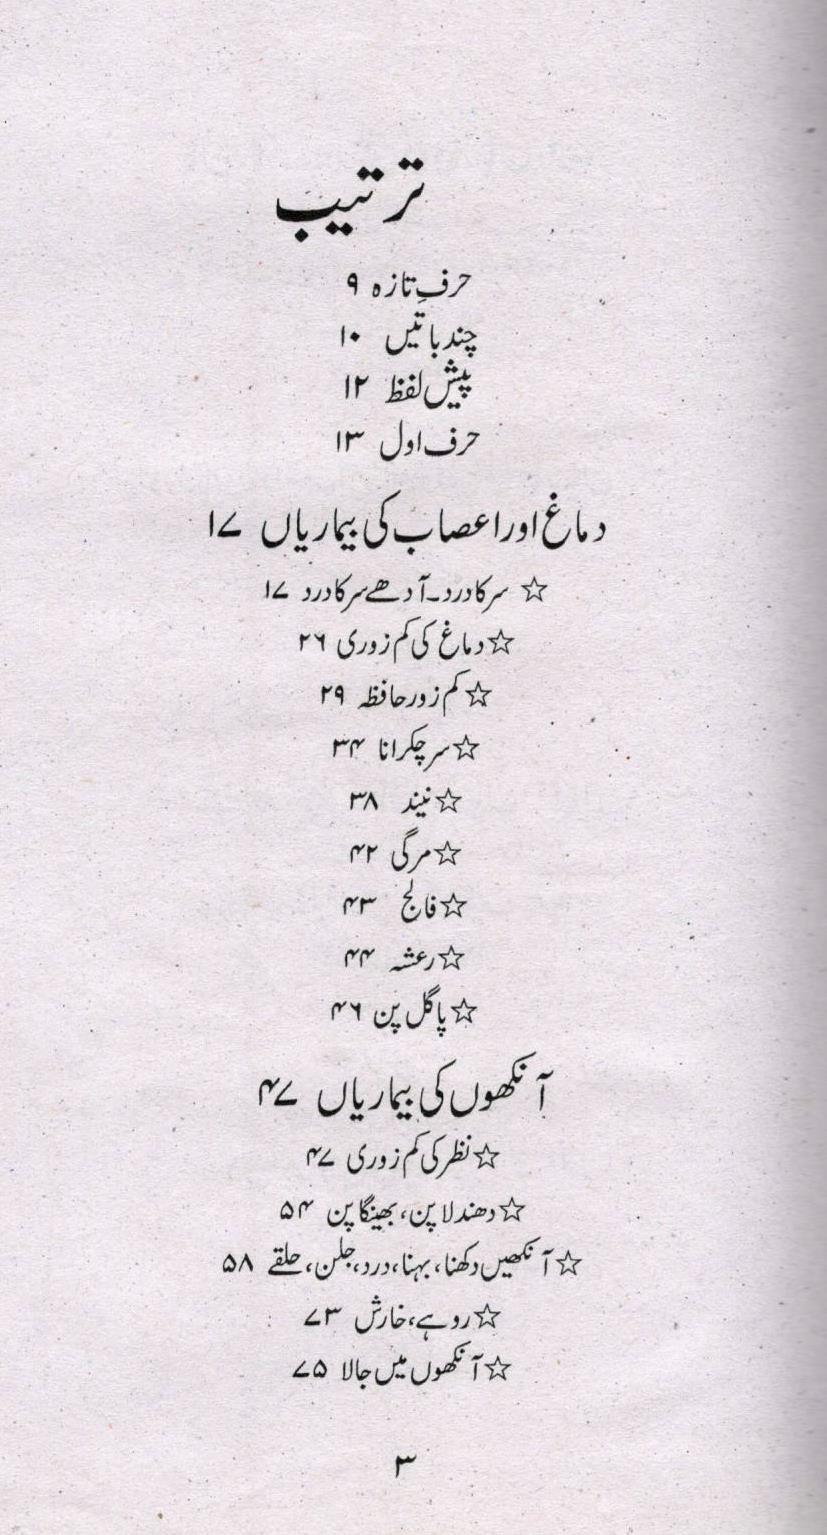 ترتیب
حرفِ تازہ ۹
چند باتیں ۱۰
پیش لفظ ۱۲
حرف اول ۱۳
دماغ اور اعصاب کی بیماریاں ۱۷
☆ سر کا درد۔ آدھے سر کا درد ۱۷
☆ دماغ کی کم زوری ۲۶
☆ کم زور حافظہ ۲۹
☆ سر چکرانا ۳۴
☆ نیند ۳۸
☆ مرگی ۴۲
☆ فالج ۴۳
☆ رعشہ ۴۴
☆ پاگل پن ۴۶
آنکھوں کی بیماریاں ۴۷
☆ نظر کی کم زوری ۴۷
☆ دھندلا پن، بھینگا پن ۵۴
☆ آنکھیں دکھنا، بہنا، درد، جلن، حلقے ۵۸
☆ روہے، خارش ۷۳
☆ آنکھوں میں جالا ۷۵
۳